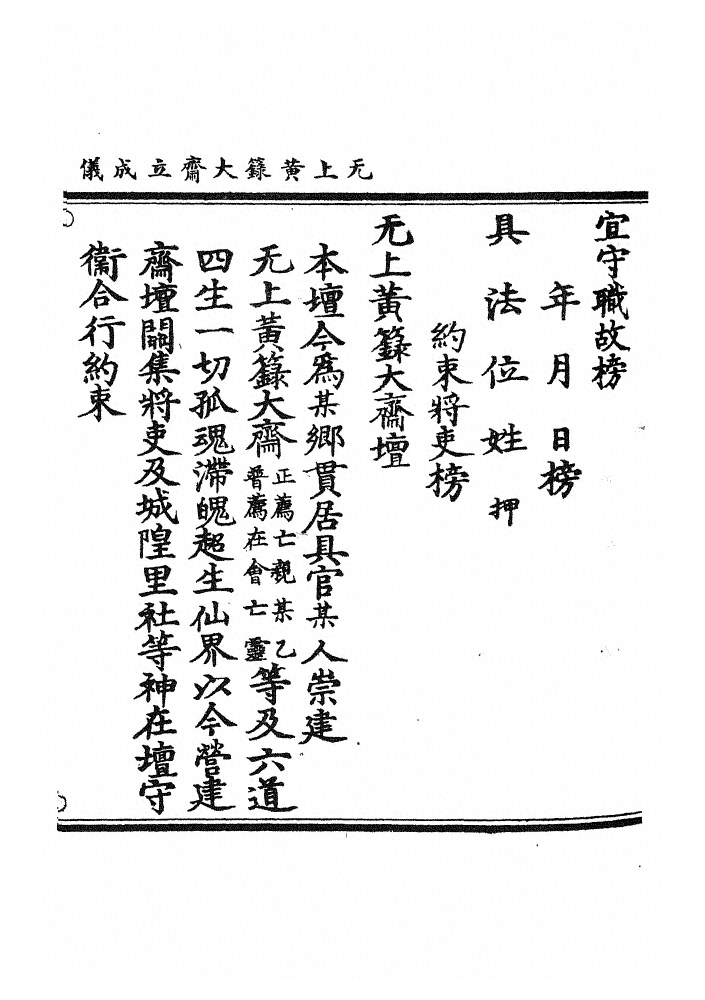 无上黃籙大齋立成儀
宜守職故榜
年月日榜
具法位姓押
約束將吏榜
无上黃籙大齋壇
本壇今爲某鄉貫居具官某人崇建
无上黃籙大齋正薦亡親某乙普薦在會亡靈等及六道
四生一切孤魂滯魄超生仙界以今營建
齋壇關集將吏及城隍里社等神在壇守
衞合行約束